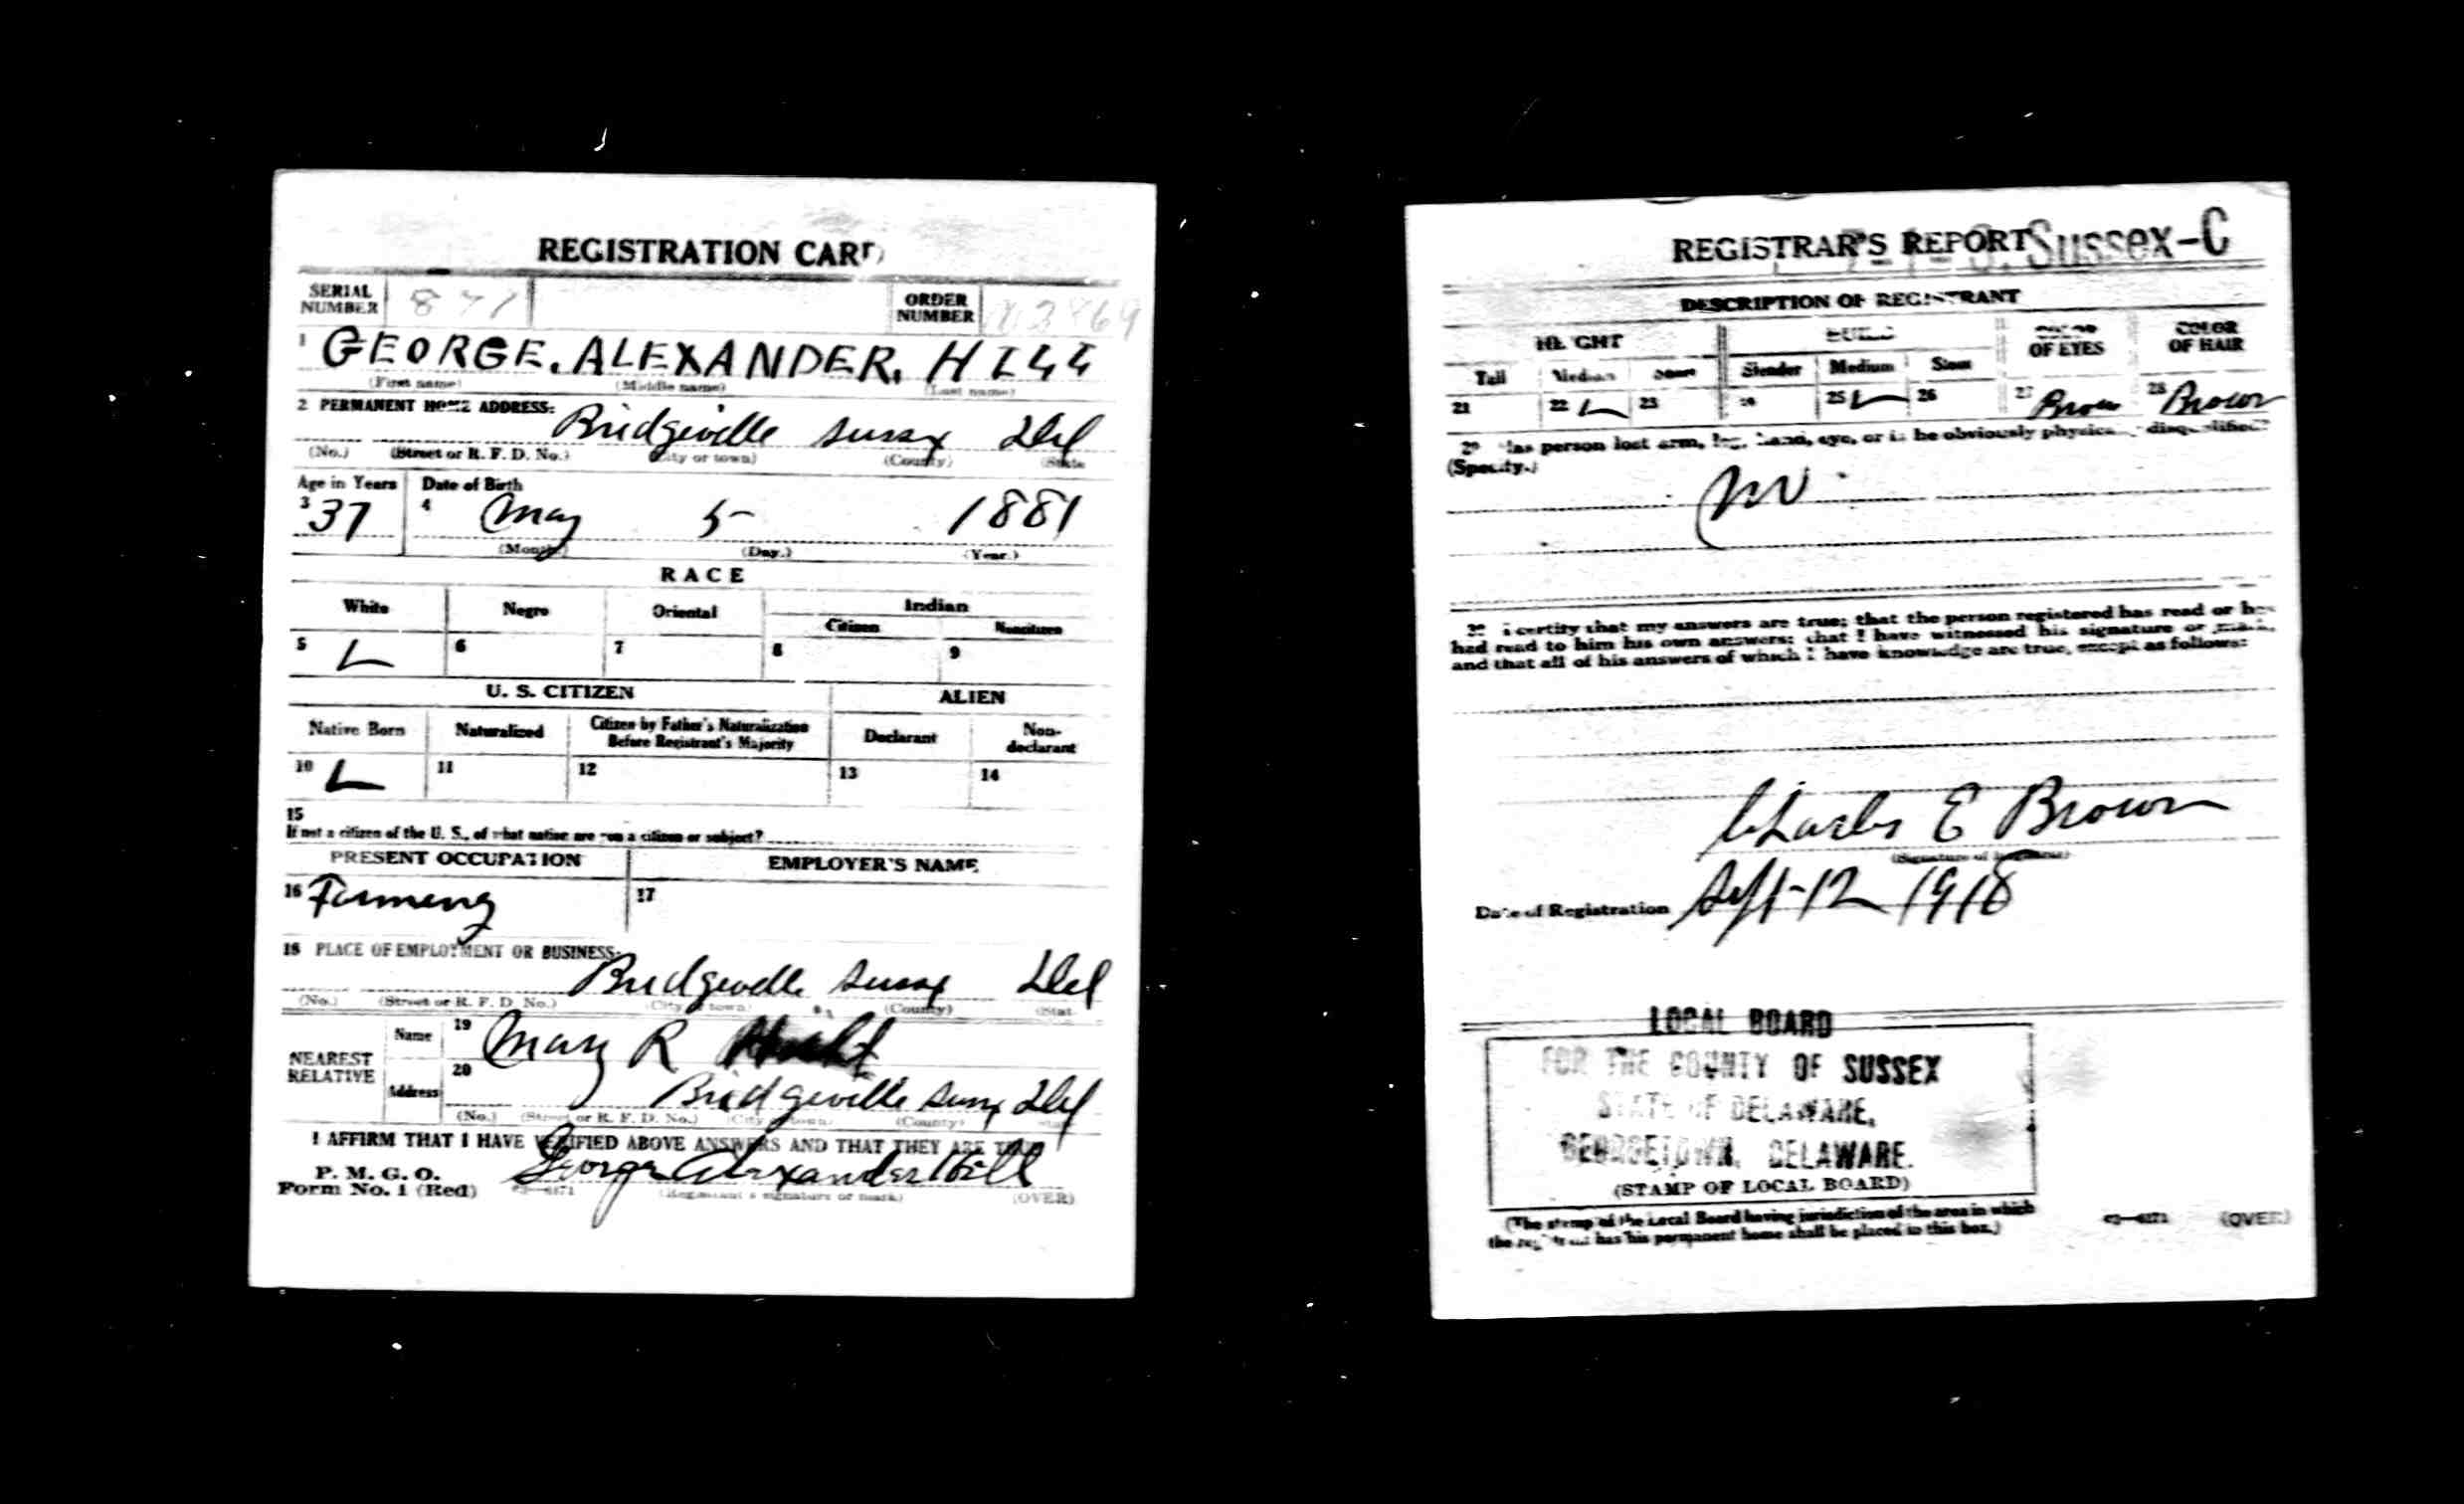 REGISTRATION CARD
SERIAL NUMBER 871
ORDER NUMBER
1 GEORGE. ALEXANDER. HILL
(First name) (Middle name) (Last name)
2 PERMANENT HOME ADDRESS:
Bridgeville Sussex Del
(No.) (Street or R. F. D. No.) (City or town) (County) (State
Age in Years Date of Birth
3 37 4 May 5- 1881
(Month.) (Day.) (Year.)
RACE
White Negro Oriental Indian
Citizen Noncitizen
5 6 7 8 9
U. S. CITIZEN ALIEN
Native Born Naturalized Citizen by Father's Naturalization Before Registrant's Majority Declarant Non-declarant
10 11 12 13 14
15
If not a citizen of the U. S., of what nation are you a citizen or subject?
PRESENT OCCUPATION EMPLOYER'S NAME
16 Farming 17
18 PLACE OF EMPLOYMENT OR BUSINESS:
Bridgeville Sussex Del
(No.) (Street or R. F. D. No.) (City or town) (County) (Stat
NEAREST RELATIVE Name 19 Mary R
Address 20 Bridgeville Sussex Del
(No.) (Street or R. F. D. No.) (City or town) (County)
I AFFIRM THAT I HAVE VERIFIED ABOVE ANSWERS AND THAT THEY ARE TRUE
P. M. G. O.
Form No. 1 (Red) George Alexander Hill
03—6171 (Registrant's signature or mark) (OVER)
REGISTRAR'S REPORT Sussex-C
DESCRIPTION OF REGISTRANT
HEIGHT BUILD COLOR OF EYES COLOR OF HAIR
Tall Medium Short Slender Medium Stout
21 22 23 24 25 26 27 Brown 28 Brown
29 Has person lost arm, leg, hand, eye, or is he obviously physically disqualified?
(Specify.)
No
30 I certify that my answers are true; that the person registered has read or has
had read to him his own answers; that I have witnessed his signature or mark,
and that all of his answers of which I have knowledge are true, except as follows:
Charles E Brown
(Signature of Registrar)
Date of Registration Sept-12 1918
LOCAL BOARD
FOR THE COUNTY OF SUSSEX
STATE OF DELAWARE,
GEORGETOWN, DELAWARE.
(STAMP OF LOCAL BOARD)
(The stamp of the Local Board having jurisdiction of the area in which
the registrant has his permanent home shall be placed in this box.)
03—6171 (OVER)